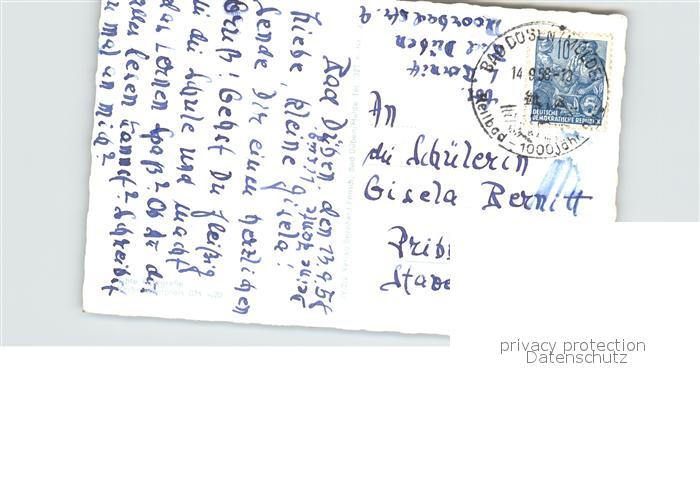 Bad Düben, den 13.9.58
Liebe, kleine Gisela!
Sende Dir einen herzlichen
Gruß! Gehst Du fleißig
in die Schule und macht
das Lernen Spaß? Ob Du dies
alles lesen kannst? Schreibst
Du mal an mich?
Bad Düben
Moorbadstr. 9
BAD DÜBEN (MULDE)
14.9.58-13
Heilbad - 1000jähr.
10
5
DEUTSCHE
DEMOKRATISCHE REPUBLIK
An
die Schülerin
Gisela Bernitt
Prib
Stave
privacy protection
Datenschutz